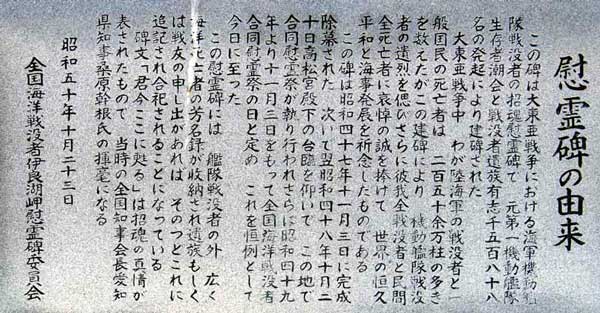 慰霊碑の由来
この碑は大東亜戦争における海軍機動艦
隊戦没者の招魂慰霊碑で 元第一機動艦隊
生存者潮会と戦没者遺族有志千五百八十八
名の発起により建碑された
大東亜戦争中 わが陸海軍の戦没者と一
般国民の死亡者は 二百五十余万柱の多き
を数えたがこの建碑により 機動艦隊戦没
者の遺烈を偲びさらに彼我全戦没者と民間
全死亡者に哀悼の誠を捧げて 世界の恒久
平和と海事発展を祈念したものである
この碑は昭和四十七年十一月三日に完成
除幕された 次いで翌昭和四十八年十月二
十日高松宮殿下の台臨を仰いで この地で
合同慰霊祭が執り行われさらに昭和四十九
年より十一月三日をもって全国海洋戦没者
合同慰霊祭の日と定め これを恒例として
今日に至った
この慰霊碑には 艦隊戦没者の外 広く
海洋死亡者の芳名録が収納され遺族もしく
は戦友の申し出があれば そのつどこれに
追記され合祀されることになっている
碑文「君今ここに甦る」は招魂の真情が
表されたもので 当時の全国知事会長愛知
県知事桑原幹根氏の揮毫になる
昭和五十年十月二十三日
全国海洋戦没者伊良湖岬慰霊碑委員会